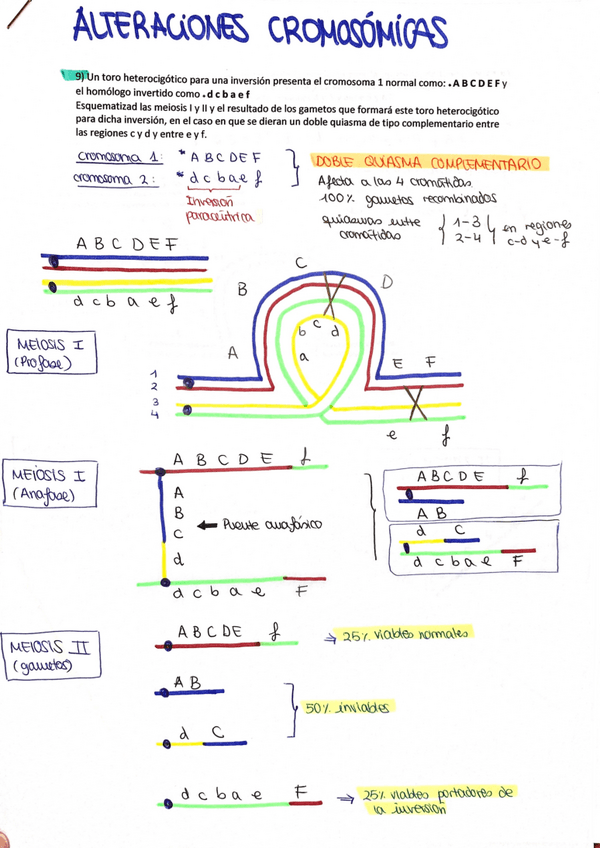 ALTERACIONES CROMOSÓMICAS
9) Un toro heterocigótico para una inversión presenta el cromosoma 1 normal como: .A B C D E F y
el homólogo invertido como .d c b a e f
Esquematizad las meiosis I y II y el resultado de los gametos que formará este toro heterocigótico
para dicha inversión, en el caso en que se dieran un doble quiasma de tipo complementario entre
las regiones c y d y entre e y f.
cromosoma 1: • A B C D E F
cromosoma 2: • d c b a e f
Inversión
paracéntrica
DOBLE QUIASMA COMPLEMENTARIO
Afecta a las 4 cromátidas
100% gametos recombinados
quiasmas entre
cromátidas
1-3
2-4
en regiones
c-d y e-f
A B C D E F
d c b a e f
MEIOSIS I
(Profase)
A B C D E F
b c d
a
1
2
3
4
e f
MEIOSIS I
(Anafase)
A B C D E f
A
B
C
d
← Puente anafásico
d c b a e F
A B C D E f
A B
d C
d c b a e F
MEIOSIS II
(gametos)
A B C D E f
⇒ 25% viables normales
A B
d C
50% inviables
d c b a e F
⇒ 25% viables portadores de
la inversión